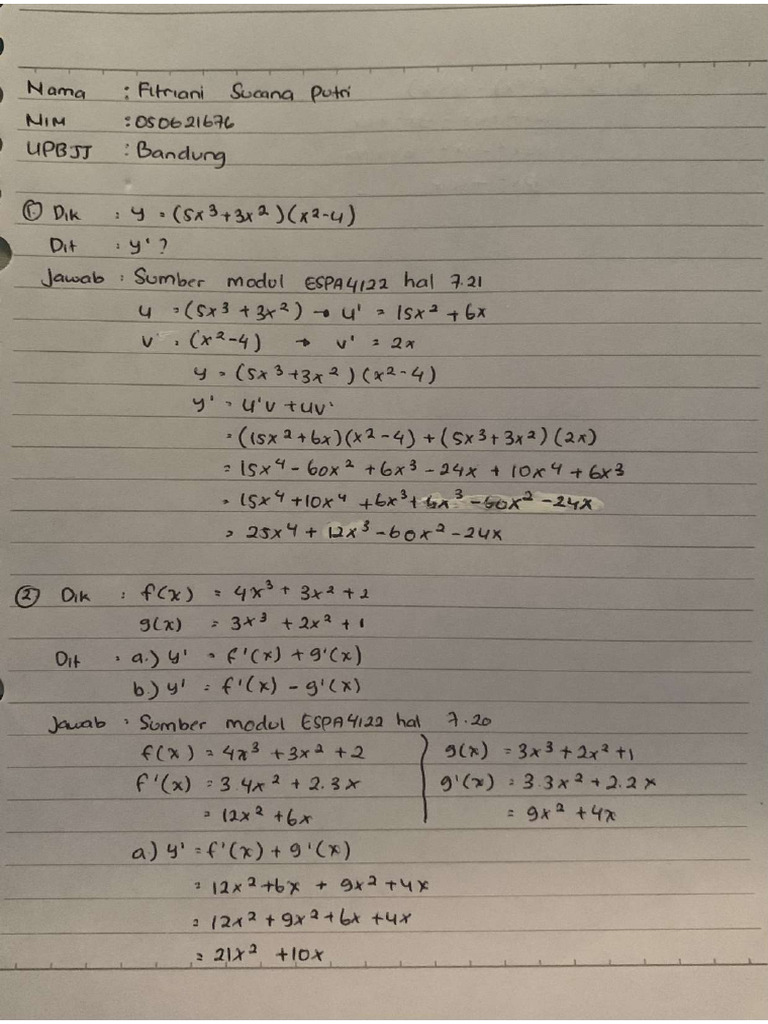 Nama : Fitriani Sucana Putri
NIM : 050621676
UPBJJ : Bandung
① Dik : y = (5x³+3x²)(x²-4)
Dit : y' ?
Jawab : Sumber modul ESPA4122 hal 7.21
u = (5x³ + 3x²) → u' = 15x² + 6x
v = (x²-4) → v' = 2x
y = (5x³+3x²)(x²-4)
y' = u'v + uv'
= (15x² + 6x)(x²-4) + (5x³+3x²)(2x)
= 15x⁴ - 60x² + 6x³ - 24x + 10x⁴ + 6x³
= 15x⁴ + 10x⁴ + 6x³ + 6x³ - 60x² - 24x
= 25x⁴ + 12x³ - 60x² - 24x
② Dik : f(x) = 4x³ + 3x² + 2
g(x) = 3x³ + 2x² + 1
Dit : a.) y' = f'(x) + g'(x)
b.) y' = f'(x) - g'(x)
Jawab : Sumber modul ESPA4122 hal 7.20
f(x) = 4x³ + 3x² + 2 g(x) = 3x³ + 2x² + 1
f'(x) = 3.4x² + 2.3x g'(x) = 3.3x² + 2.2x
= 12x² + 6x = 9x² + 4x
a.) y' = f'(x) + g'(x)
= 12x² + 6x + 9x² + 4x
= 12x² + 9x² + 6x + 4x
= 21x² + 10x